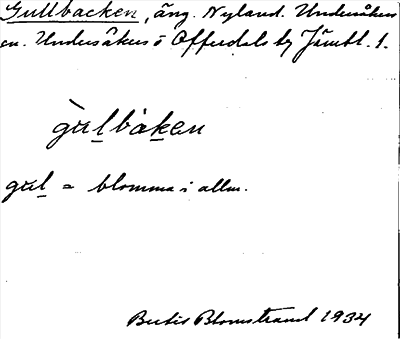 Gullbacken, äng. Nyland. Undersåkers
sn. Undersåkers o Offerdals tg Jämtl. l.
gu̠l̠bàk̠en
gul̠ = blomma i allm.
Bertis Blomstrand 1934